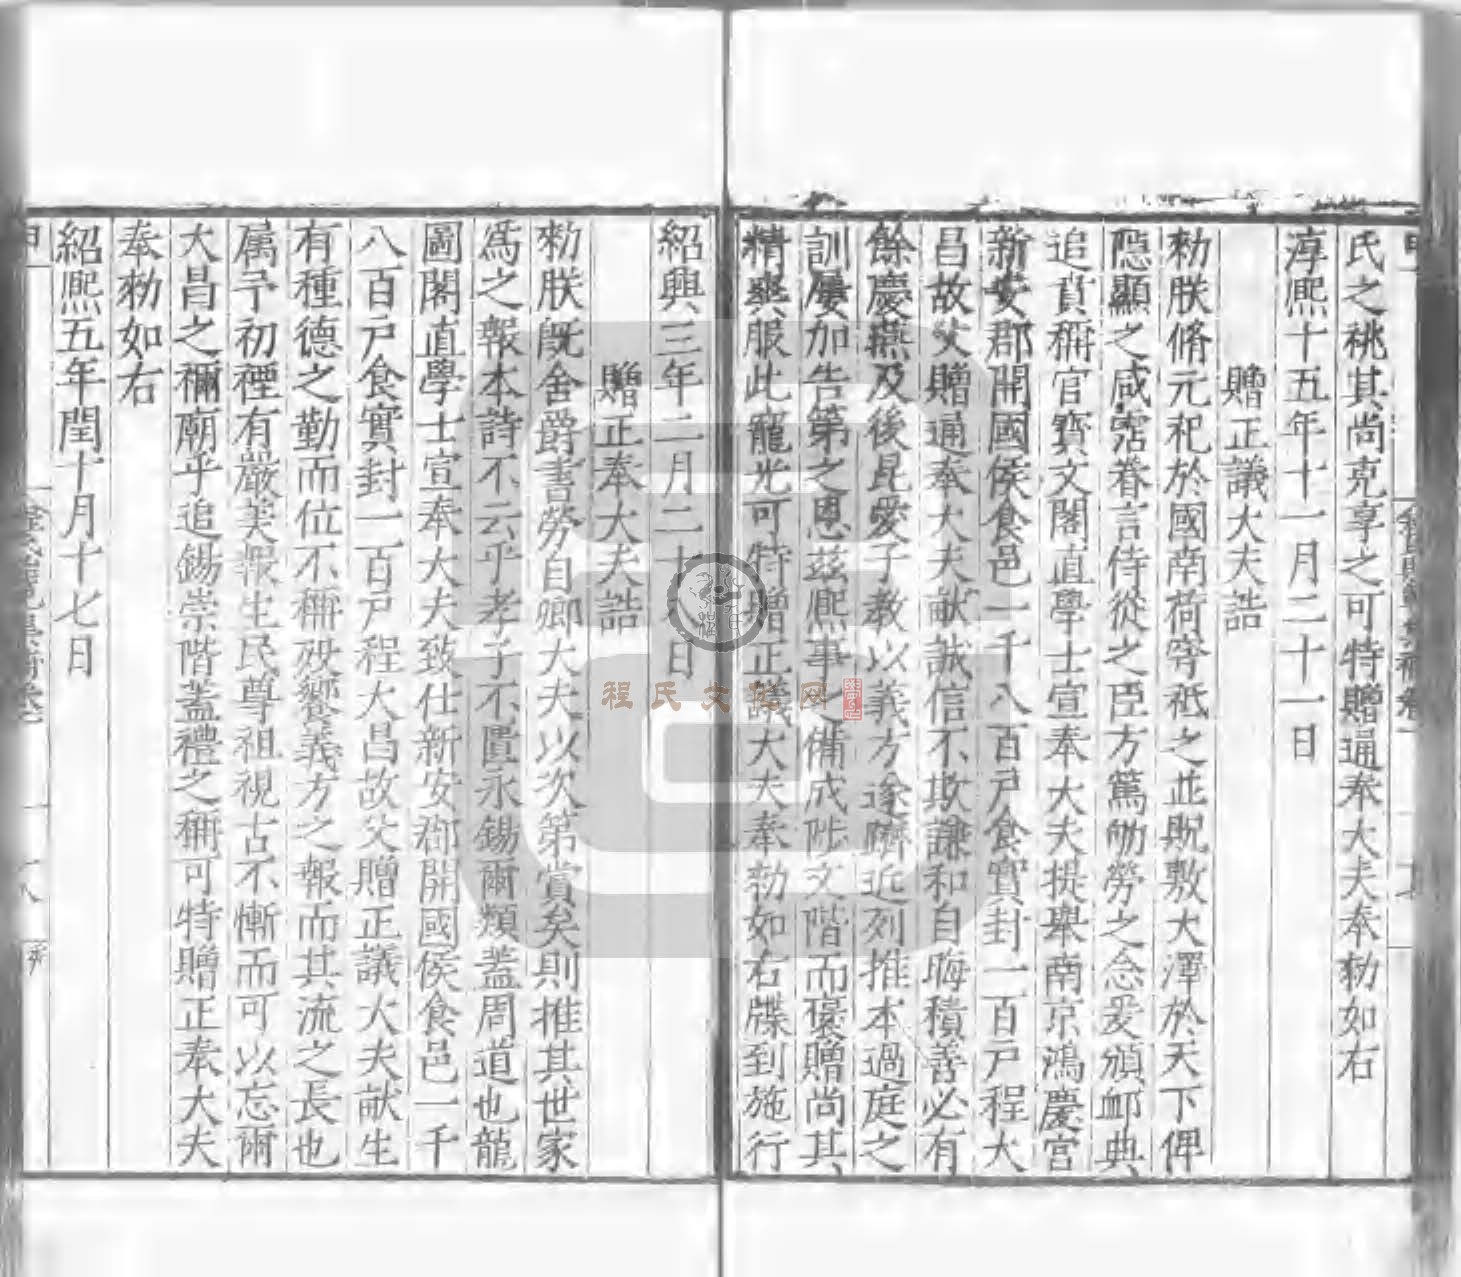 氏之祧其尚克享之可特贈通奉大夫奉勑如右
淳熙十五年十一月二十一日
贈正議大夫誥
勑朕脩元祀於國南荷穹祗之並貺敷大澤於天下俾
隠顯之咸霑眷言侍從之臣方篤劬勞之念爰頒䘏典
追賁稱官寳文閣直學士宣奉大夫提舉南京鴻慶宮
新安郡開國侯食邑一千八百戸食實封一百戸程大
昌故父贈通奉大夫畎誠信不欺謙和自晦積善必有
餘慶燕及後昆愛子教以義方遂隮近列推本過庭之
訓屢加告第之恩兹熙事之備成陟文階而褒贈尚其
精爽服此寵光可特贈正議大夫奉勑如右牒到施行
紹興三年二月二十八日
贈正奉大夫誥
勑朕旣舍爵書勞自卿大夫以次第賞矣則推其世家
爲之報本詩不云乎孝子不匱永錫爾類葢周道也龍
圖閣直學士宣奉大夫致仕新安郡開國侯食邑一千
八百戸食實封一百戸程大昌故父贈正議大夫畎生
有種德之勤而位不稱殁饗義方之報而其流之長也
属予初禋有嚴美報生民尊祖視古不慚而可以忘爾
大昌之禰廟乎追錫崇階葢禮之稱可特贈正奉大夫
奉勑如右
紹熙五年閏十月十七日
程氏文化网